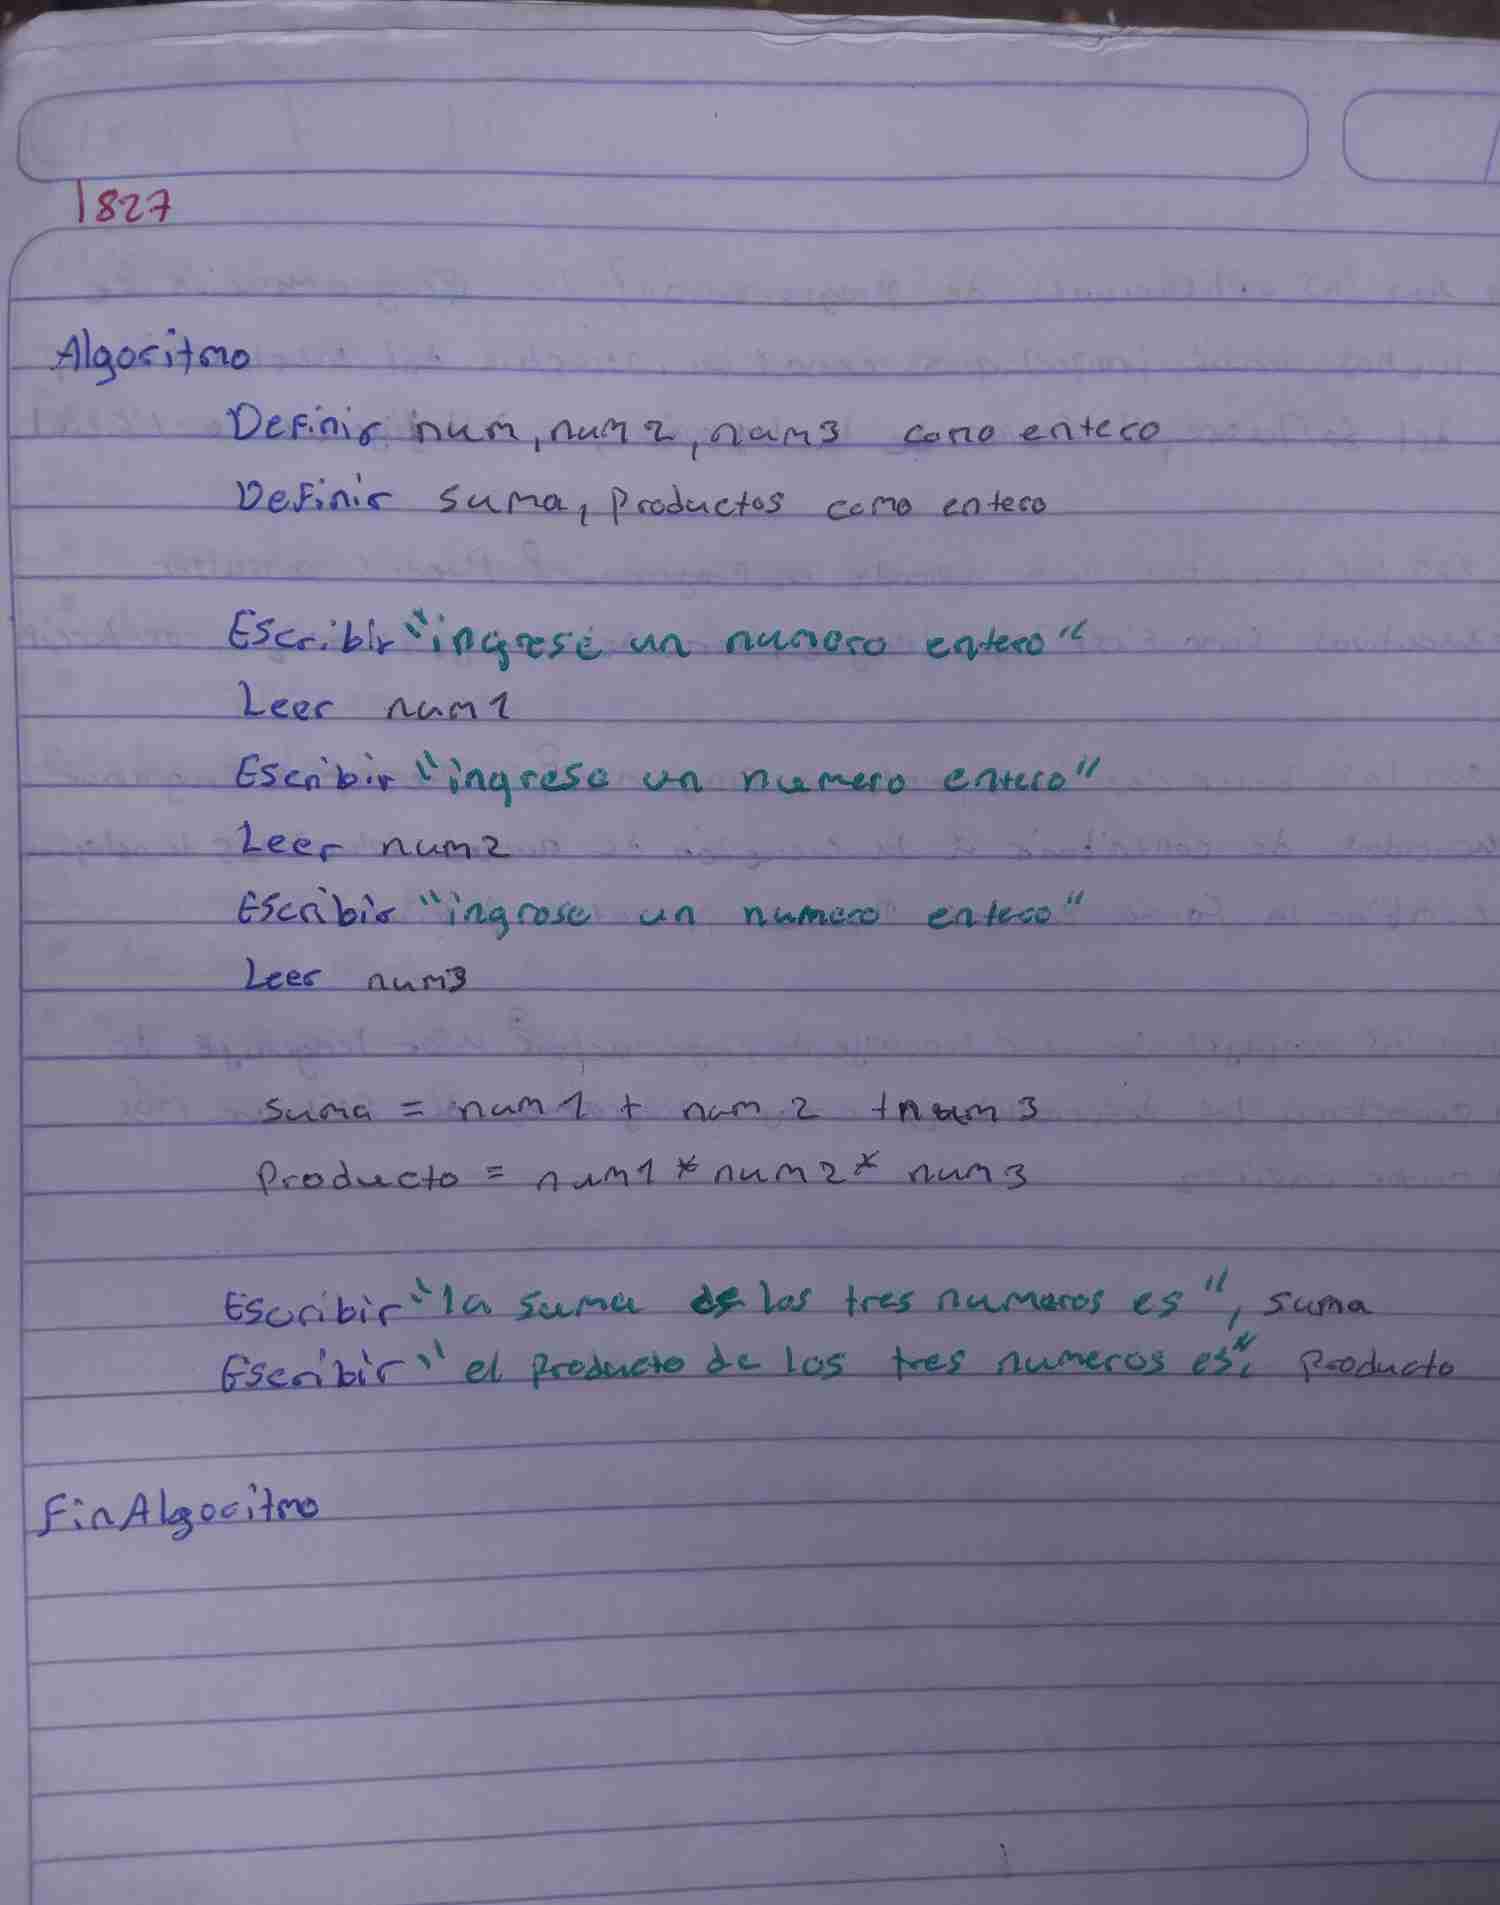 1827
Algoritmo
Definir num, num2, num3 como entero
Definir suma, productos como entero
Escribir "ingrese un numero entero"
Leer num1
Escribir "ingrese un numero entero"
Leer num2
Escribir "ingrese un numero entero"
Leer num3
suma = num1 + num2 + num3
Producto = num1 * num2 * num3
Escribir "la suma de los tres numeros es", suma
Escribir "el producto de los tres numeros es", Producto
FinAlgoritmo